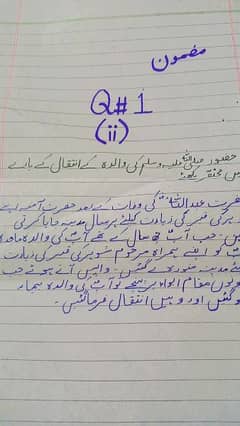 مضمون
Q#1
(ii)
حضور صلی اللہ علیہ وسلم کی والدہ کے انتقال کے بارے
میں مختصر
حضرت عبداللہ کی وفات کے بعد حضرت آمنہ اپنے
کی قبر کی زیارت کیلئے ہر سال مدینہ جایا کرتی
جب آپ چھ سال کے تھے آپ کی والدہ ماجدہ
آپ کو اپنے ہمراہ مرحوم شوہر کی قبر کی زیارت
مدینہ منورہ لے گئیں۔ واپس آتے ہوئے جب
دونوں مقام ابواء پر پہنچے تو آپ کی والدہ بیمار
ہو گئیں اور وہیں انتقال فرما گئیں۔